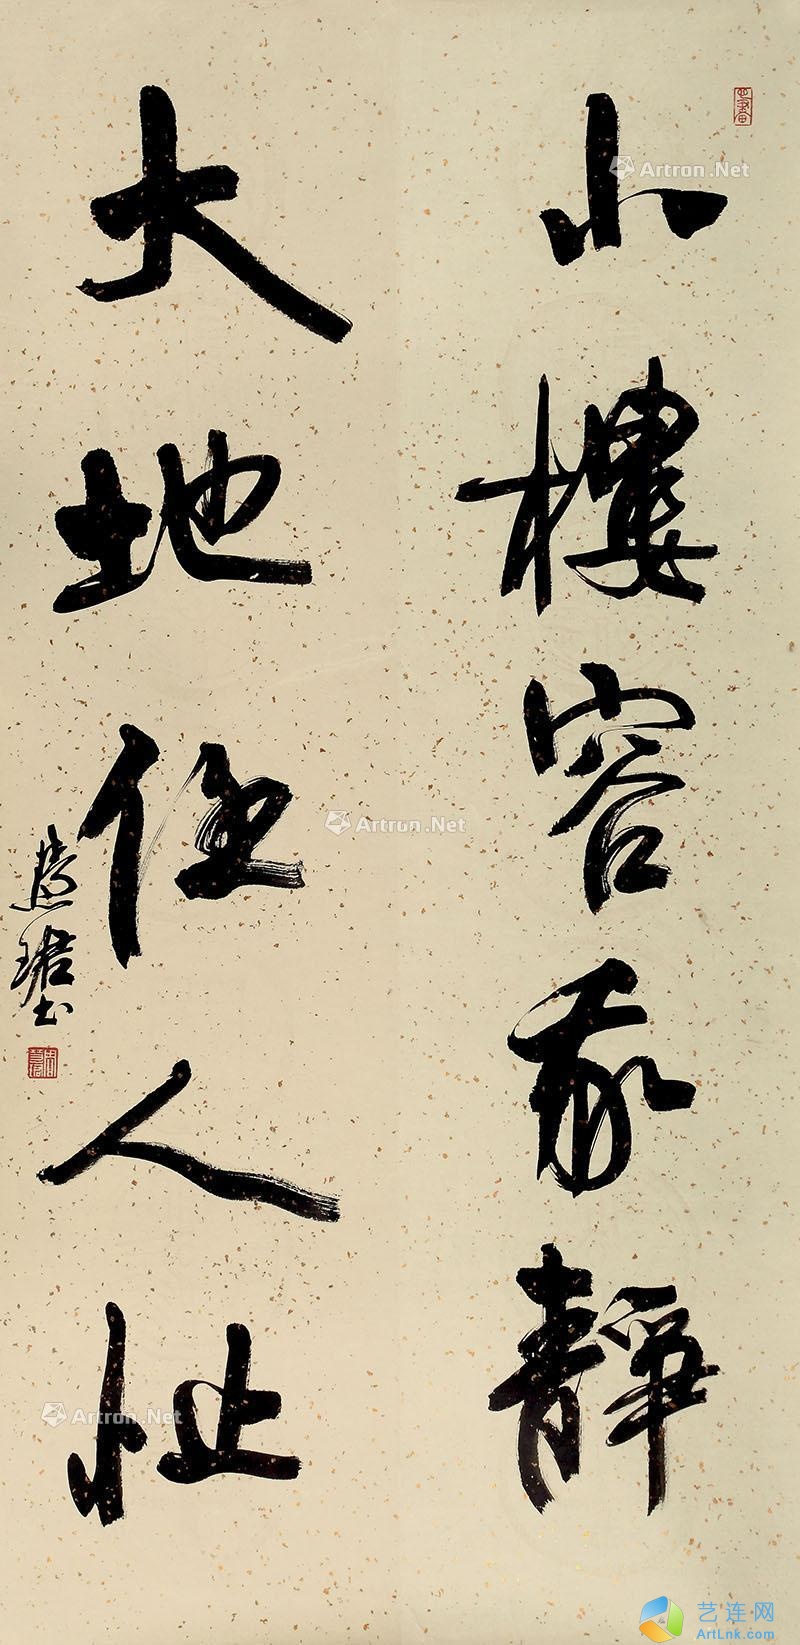 小樓容我靜
大地任人忙
慧珺书
Artron.Net
Artron.Net
Artron.Net
艺连网
ArtLnk.com